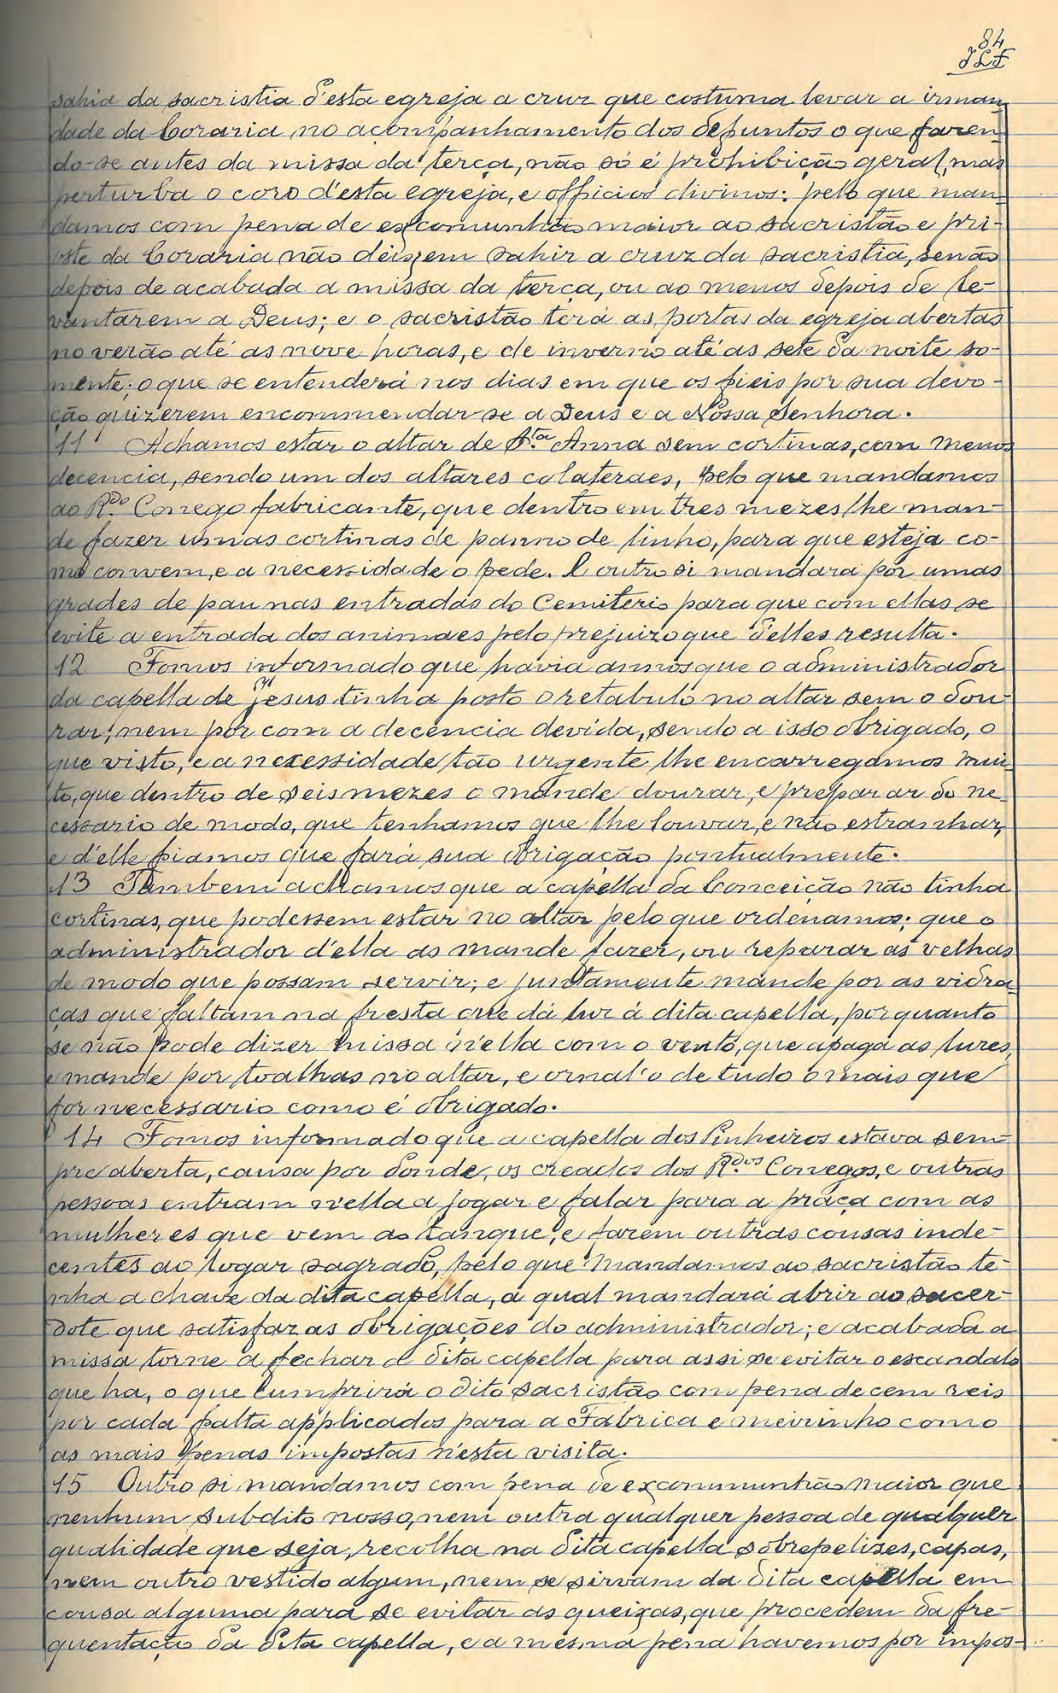 84
JLF
sahia da sacristia d'esta egreja a cruz que costuma levar a irman-
dade da Coraria, no acompanhamento dos defuntos o que fazen-
do-se antes da missa da terça, não só é prohibição geral, mas
perturba o coro d'esta egreja, e officios divinos: pelo que man-
damos com pena de excomunhão maior ao sacristão e pri-
oste da Coraria não deixem sahir a cruz da sacristia, senão
depois de acabada a missa da terça, ou ao menos depois de le-
vantarem a Deus; e o sacristão terá as portas da egreja abertas
no verão até as nove horas, e de inverno até as sete da noite so-
mente; o que se entenderá nos dias em que os fieis por sua devo-
ção quizerem encommendar-se a Deus e a Nossa Senhora.
11 Achamos estar o altar de S.ta Anna sem cortinas, com menos
decencia, sendo um dos altares colateraes, pelo que mandamos
ao R.do Conego fabricante, que dentro em tres mezes lhe man-
de fazer umas cortinas de panno de linho, para que esteja co-
mo convem, e a necessidade o pede. E outro si mandará pôr umas
grades de pau nas entradas do Cemiterio para que com ellas se
evite a entrada dos animaes pelo prejuizo que d'elles resulta.
12 Fomos informado que havia annos que o administrador
da capella de Jesus tinha posto o retabulo no altar sem o dou-
rar, nem pôr com a decencia devida, sendo a isso obrigado, o
que visto, e a necessidade tão urgente lhe encarregamos mui-
to, que dentro de seis mezes o mande dourar, e preparar do ne-
cessario de modo, que tenhamos que lhe louvar, e não estranhar,
e d'elle fiamos que fará sua obrigação pontualmente.
13 Tambem achamos que a capella da Conceição não tinha
cortinas, que podessem estar no altar pelo que ordenamos; que o
administrador d'ella as mande fazer, ou reparar as velhas
de modo que possam servir; e juntamente mande por as vidra-
ças que faltam na fresta que dá luz á dita capella, porquanto
se não pode dizer missa n'ella com o vento, que apaga as luzes,
e mande por toalhas no altar, e ornal'o de tudo o mais que
for necessario como é obrigado.
14 Fomos informado que a capella dos Pinheiros estava sem-
pre aberta, causa por donde, os creados dos R.dos Conegos, e outras
pessoas entram n'ella a jogar e falar para a praça com as
mulheres que vem ao tanque, e fazem outras cousas inde-
centes ao logar sagrado, pelo que mandamos ao sacristão te-
nha a chave da dita capella, a qual mandará abrir ao sacer-
dote que satisfaz as obrigações do administrador; e acabada a
missa torne a fechar a dita capella para assi se evitar o escandalo
que ha, o que cumprirá o dito sacristão com pena de cem reis
por cada falta applicados para a Fabrica e meirinho como
as mais penas impostas n'esta visita.
15 Outro si mandamos com pena de excommunhão maior que
nenhum subdito nosso, nem outra qualquer pessoa de qualquer
qualidade que seja, recolha na dita capella sobrepelizes, capas,
nem outro vestido algum, nem se sirvam da dita capella em
cousa alguma para se evitar as queixas, que procedem da fre-
quentação da dita capella, e a mesma pena havemos por impos-